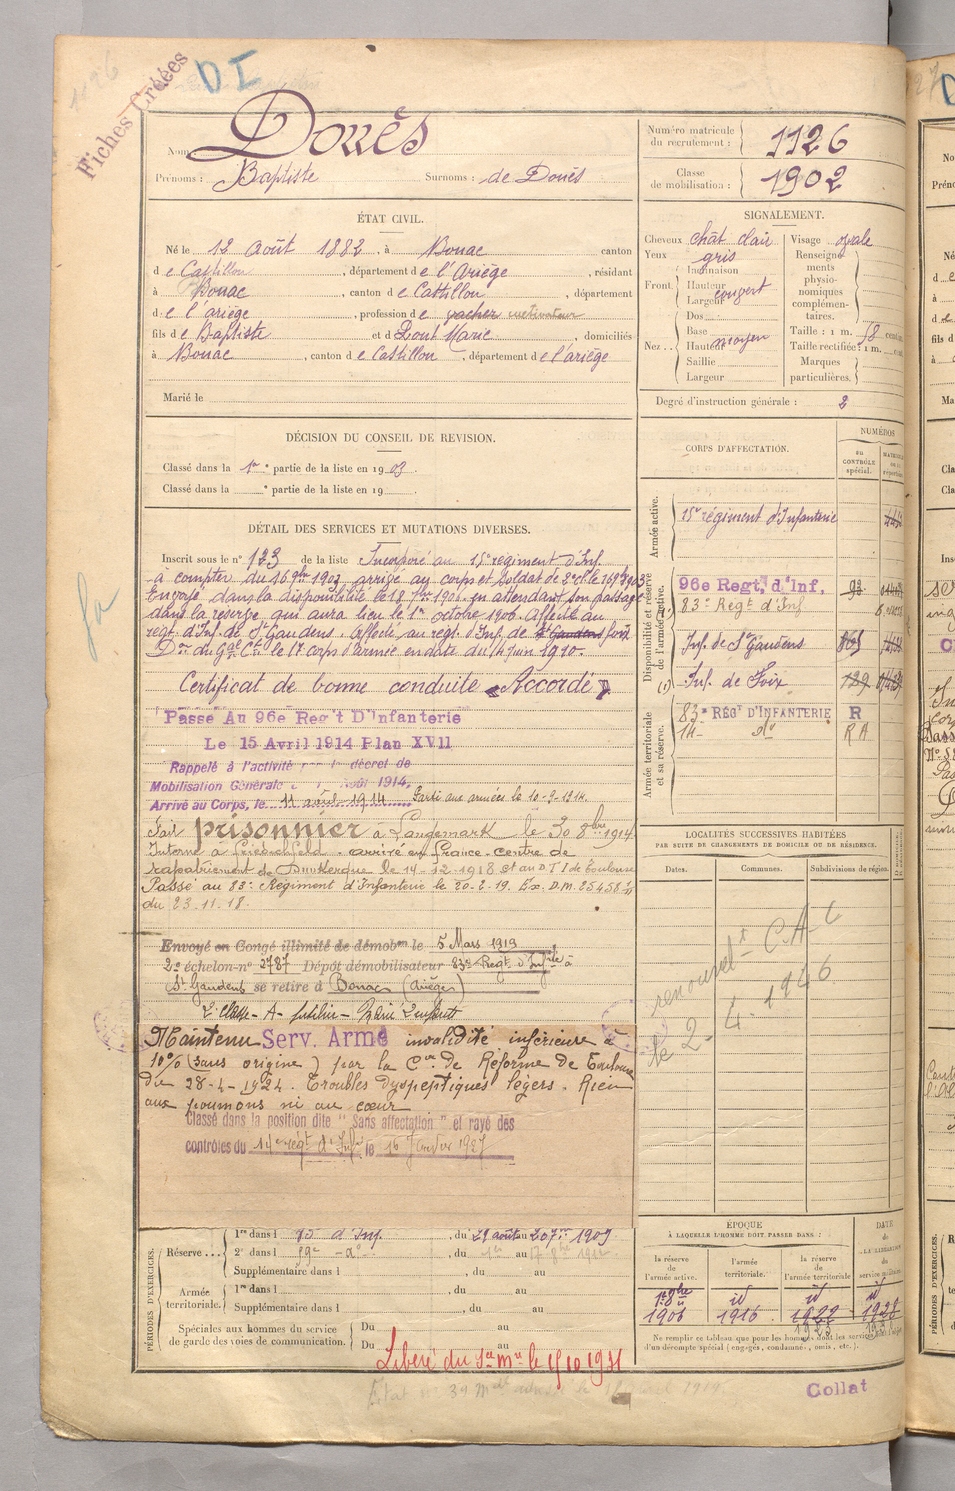 Fiches Créées
DI
Nom Douès
Prénoms : Baptiste Surnoms : de Douès
Numéro matricule du recrutement : 1126
Classe de mobilisation : 1902
ÉTAT CIVIL.
Né le 12 Août 1882, à Bonac canton
de Castillon, département de l'Ariège, résidant
à Bonac, canton de Castillon, département
de l'ariège, profession de vacher cultivateur
fils de Baptiste et d Pont Marie, domiciliés
à Bonac, canton de Castillon, département de l'ariège
Marié le
SIGNALEMENT.
Cheveux chât clair Visage ovale
Yeux gris
Front. Inclinaison
Hauteur
Largeur couvert
Nez .. Dos :
Base
Hauteur moyen
Saillie
Largeur
Renseignements physionomiques complémentaires.
Taille : 1 m. 58 cent.
Taille rectifiée : 1 m. cent.
Marques particulières.
Degré d'instruction générale : 2
DÉCISION DU CONSEIL DE REVISION.
Classé dans la 1re partie de la liste en 1903.
Classé dans la e partie de la liste en 19 .
DÉTAIL DES SERVICES ET MUTATIONS DIVERSES.
Inscrit sous le n° 123 de la liste Incorporé au 15e régiment d'Inf.
à compter du 16 9bre 1903 arrivé au corps et Soldat de 2e cl. le 16 9bre 1903
Envoyé dans la disponibilité le 18 7bre 1906 en attendant son passage
dans la réserve qui aura lieu le 1er octobre 1906. Affecté au
régt. d'Inf. de St Gaudens. Affecté au régt. d'Inf. de St Gaudens foix
Don du Gal Ct le 17 corps d'armée en date du 14 Juin 1910.
Certificat de bonne conduite « Accordé »
Passé Au 96e Reg't D'Infanterie
Le 15 Avril 1914 Plan XVII
Rappelé à l'activité par le décret de
Mobilisation Générale Août 1914,
Arrivé au Corps, le 11 août 1914 Parti aux armées le 10-9-1914.
Fait prisonnier à Langemark le 30 8bre 1914
Interné à Friedrichfeld. arrivé en France. Centre de
rapatriement de Dunkerque le 14-12-1918 et au D.T.I de Toulouse
Passé au 83e Régiment d'Infanterie le 20-2-19. Ex. D.M. 25458
du 23.11.18.
Envoyé en Congé illimité de démobon le 5 Mars 1919
2e échelon-n° 2787 Dépôt démobilisateur 83e Regt d'Infrie à
St Gaudens se retire à Bonac (Ariège)
Maintenu Serv. Armé invalidité inférieure à
10% (sans origine) par la Con de Réforme de Toulouse
du 28-4-1924. Troubles dyspeptiques légers. Rien
aux poumons ni au cœur
Classé dans la position dite " Sans affectation " et rayé des
contrôles du 14e régt d'Infie le 16 Janvier 1927
CORPS D'AFFECTATION.
NUMÉROS
AU CONTRÔLE spécial.
Armée active.
15e régiment d'Infanterie
Disponibilité et réserve de l'armée active.
96e Regt, d'Inf,
83e Regt d'Inf
Inf. de St Gaudens
Inf. de Foix
Armée territoriale et sa réserve.
83e RÉGT D'INFANTERIE R
14- do RA
LOCALITÉS SUCCESSIVES HABITÉES
PAR SUITE DE CHANGEMENTS DE DOMICILE OU DE RÉSIDENCE.
Dates. Communes. Subdivisions de région.
renouvelt C.A.C
le 2- 4. 1946
PÉRIODES D'EXERCICES.
Réserve ...
1re dans l 15 d'Inf. , du 24 août au 20 7bre 1909
2e dans l , du au
Supplémentaire dans l , du au
Armée territoriale.
1re dans l , du au
Supplémentaire dans l , du au
Spéciales aux hommes du service de garde des voies de communication.
Du au
Du au
ÉPOQUE
À LAQUELLE L'HOMME DOIT PASSER DANS :
la réserve de l'armée active.
l'armée territoriale.
la réserve de l'armée territoriale
DATE DE LA LIBÉRATION du service militaire.
1er 8bre 1906 id 1916 id 1922 id 1928
Ne remplir ce tableau que pour les hommes dont les services
d'un décompte spécial (engagés, condamnés, omis, etc.).
Libéré du Sce Mre le 15 10 1931
Collat